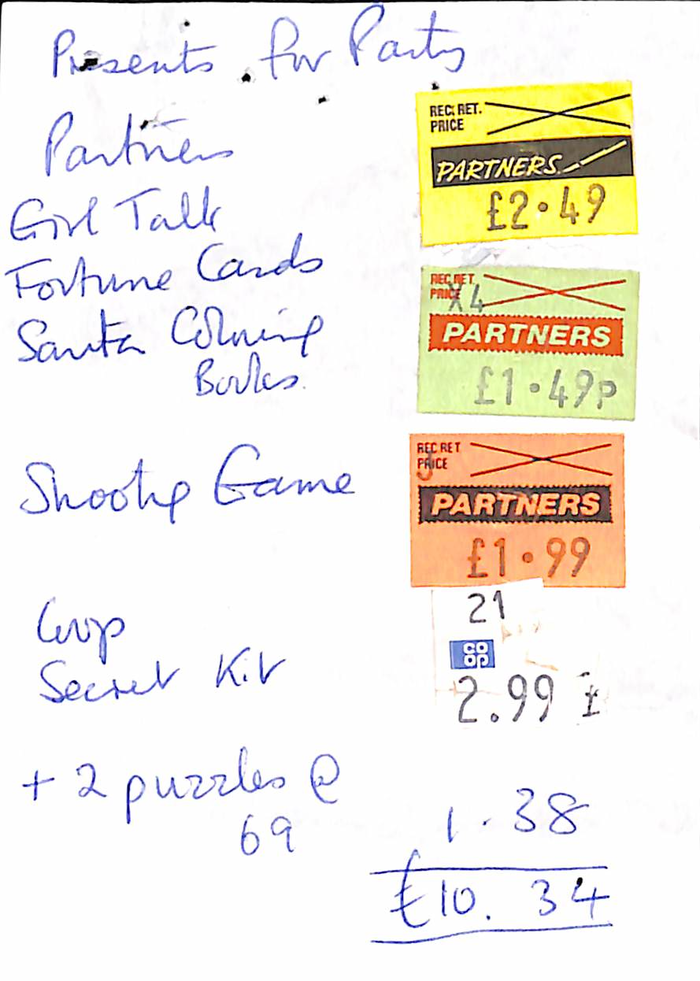 Presents for Party
Partners
REC. RET.
PRICE
PARTNERS
£2·49
Girl Talk
Fortune Cards
REC. RET.
PRICE
X4
PARTNERS
£1·49p
Santa Colouring
Books.
Shooting Game
REC RET
PRICE
PARTNERS
£1·99
Coop
21
CO
OP
Secret Kit
2.99 £
+ 2 puzzles @
69
1.38
£10.34